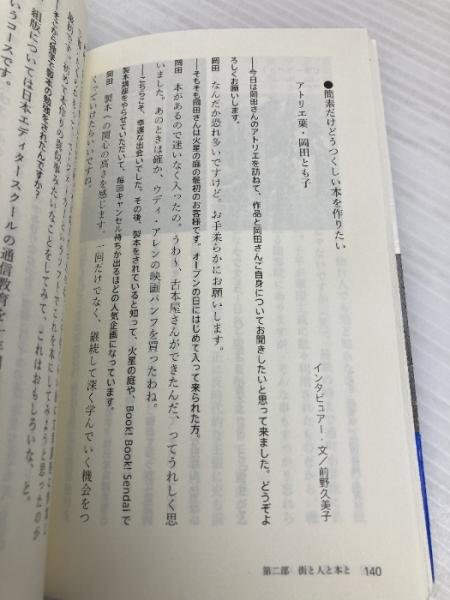 ●簡素だけどうつくしい本を作りたい
アトリエ葉・岡田とも子
インタビュアー・文/前野久美子
──今日は岡田さんのアトリエを訪ねて、作品と岡田さんご自身についてお聞きしたいと思って来ました。どうぞよ
ろしくお願いします。
岡田 なんだか恐れ多いですけど。お手柔らかにお願いします。
──そもそも岡田さんは火星の庭の最初のお客様です。オープンの日にはじめて入って来られた方。
岡田 本があるので迷いなく入ったの。うわ〜、古本屋さんができたんだ、ってうれしく思
いました。あのときは確か、ウディ・アレンの映画パンフを買ったわね。
──こちらこそ、幸運な出会いでした。その後、製本をされていると知って、火星の庭や、Book! Book! Sendaiで
製本講座をやらせていただいて、毎回キャンセル待ちが出るほどの人気企画になっています。
岡田 本への関心の高さを感じます。一回だけでなく、継続して深く学んでいく機会をつ
くっていけたらいいですね。
独学で製本の勉強をされたんですか?
みたいなことをしてみて、これはおもしろいな、と。
組版については日本エディタースクールの通信教育を
いうコースです。
第二部 街と人と本と 140